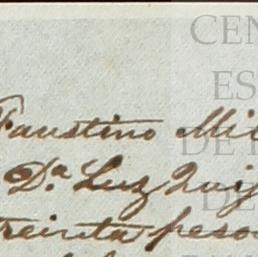 CEN
ES
DE
Faustino Mi
Da. Luz Quij
DE
treinta peso